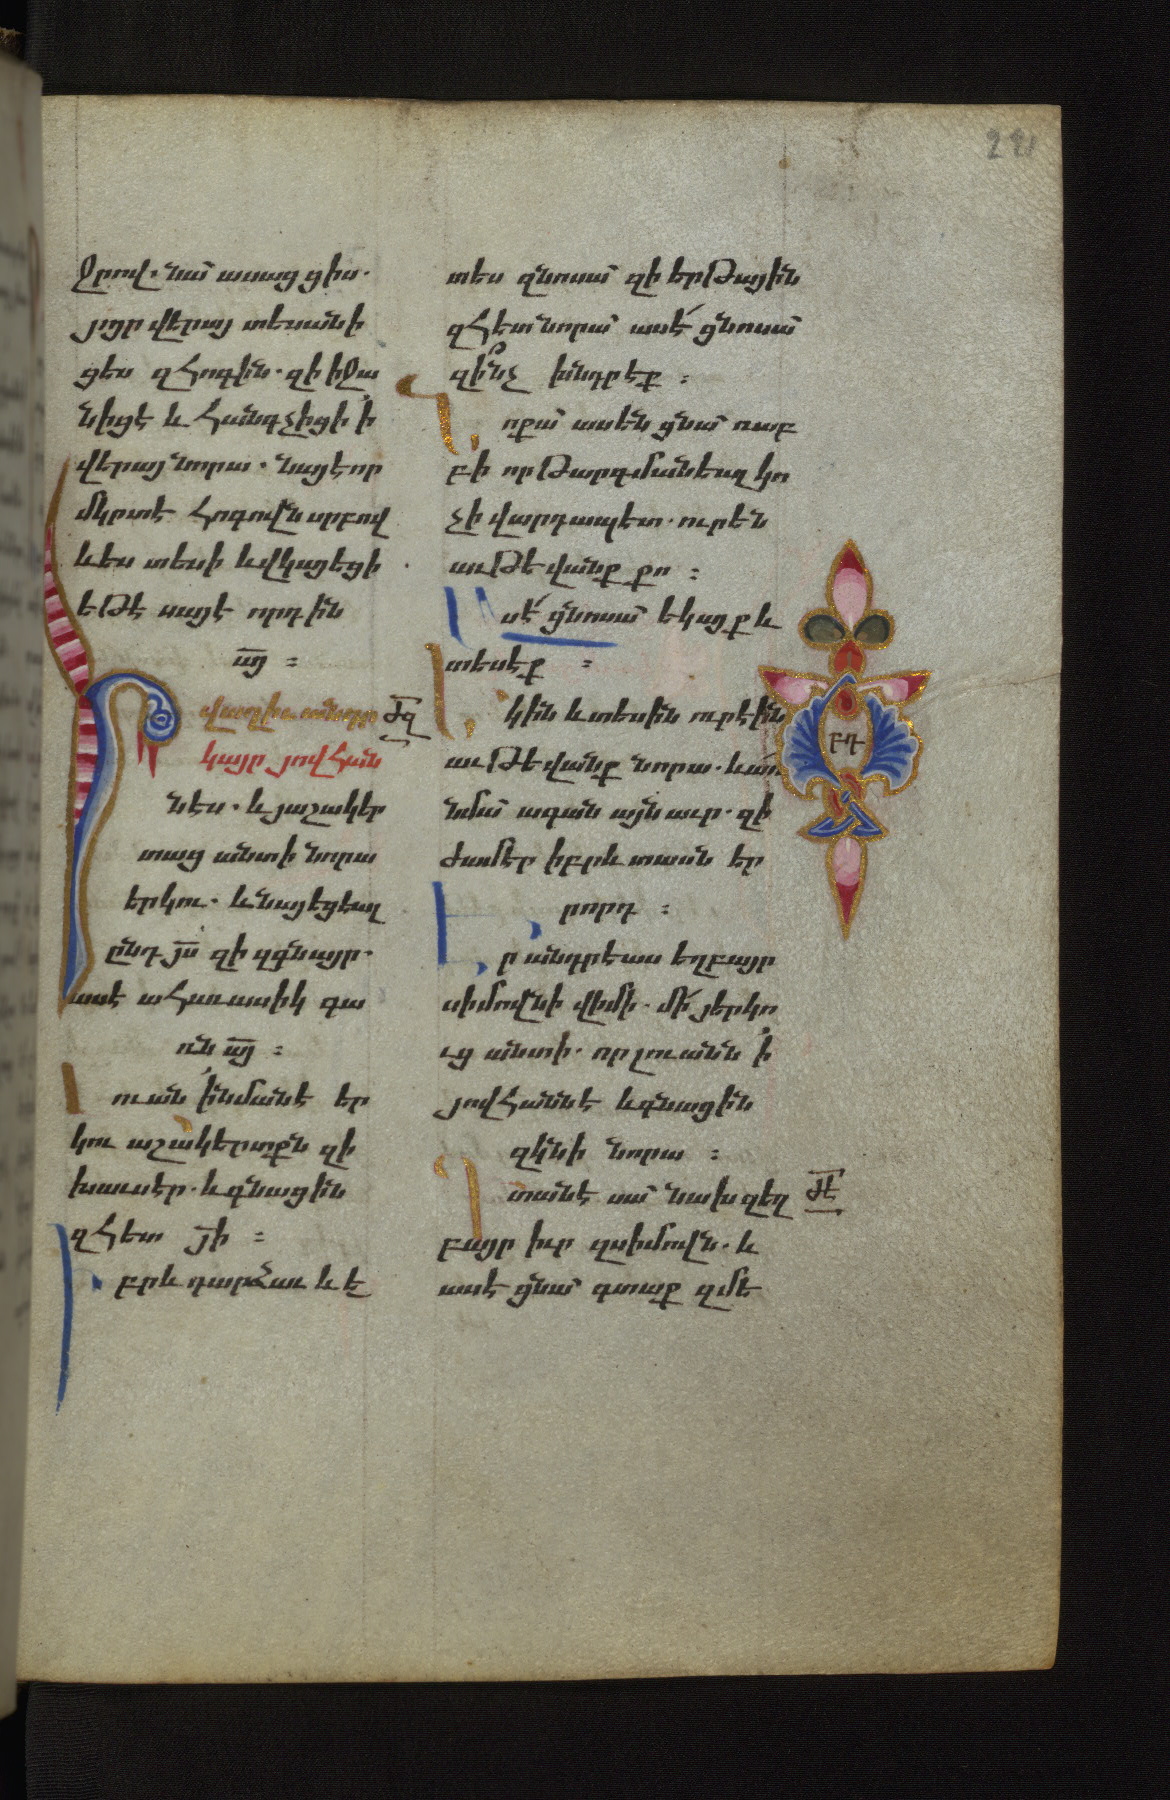 221
ջրով. նա՛ ասաց ցիս.
յոյր վերայ տեսանի
ցես զհոգին. զի իջա
նիցէ և հանգչիցի ՛ի
վերայ նորա. նայէ որ
մկրտէ հոգովն սրբով
և ես տեսի և վկայեցի
եթէ սայէ որդին
այ :
վաղիւ անդր
ժզ
կայր յովհան
նէս. և յաշակեր
տաց անտի նորա
երկու. և նայեցեալ
ընդ յս զի զգնայր.
ասէ ահաւասիկ գա
ռն այ :
Լուան ՛ի նմանէ եր
կու աշակերտքն զի
խաւսէր. և գնացին
զհետ յի :
Իբրև դարձաւ և է
տես զնոսա՛ զի երթային
զհետ նորա՛ ասէ՛ ցնոսա՛
զի՞նչ խնդրէք :
Նոքա՛ ասեն ցնա՛ ռաբ
բի որ թարգմանեալ կո
չի վարդապետ. ուր են
աւթեվանք քո :
Ասէ՛ ցնոսա՛ եկայք և
տեսէք :
Եկին և տեսին ուր էին
աւթեվանք նորա. և առ
նմա՛ ագան այն աւր. զի
ժամ էր իբրև տասն եր
բդ
րորդ :
Էր անդրէաս եղբայր
սիմովնի վիմի. մի՛ յերկո
ւց անտի. որ լուանն ՛ի
յովհաննէ և գնացին
զկնի նորա :
Գտանէ սա՛ նախ զեղ
ժէ
բայր իւր զսիմովն. և
ասէ ցնա՛ գտաք զմե